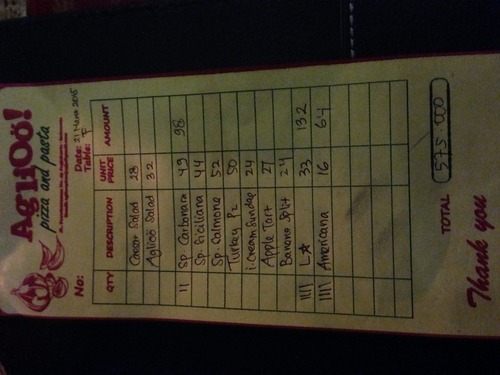 Aglioo!
pizza and pasta
No:
Date: 21 Mare 2015
Table: F
QTY DESCRIPTION UNIT PRICE AMOUNT
Garden Salad 28
Aglioo Salad 32
II Sp Carbonara 49 98
Sp Siciliana 44
Sp Calmone 52
Turkey Pz 50
i cream Sundae 24
Apple Tart 27
Banana Split 24
IIII L☆ 33 132
IIII Americana 16 64
TOTAL 575.000
Thank you